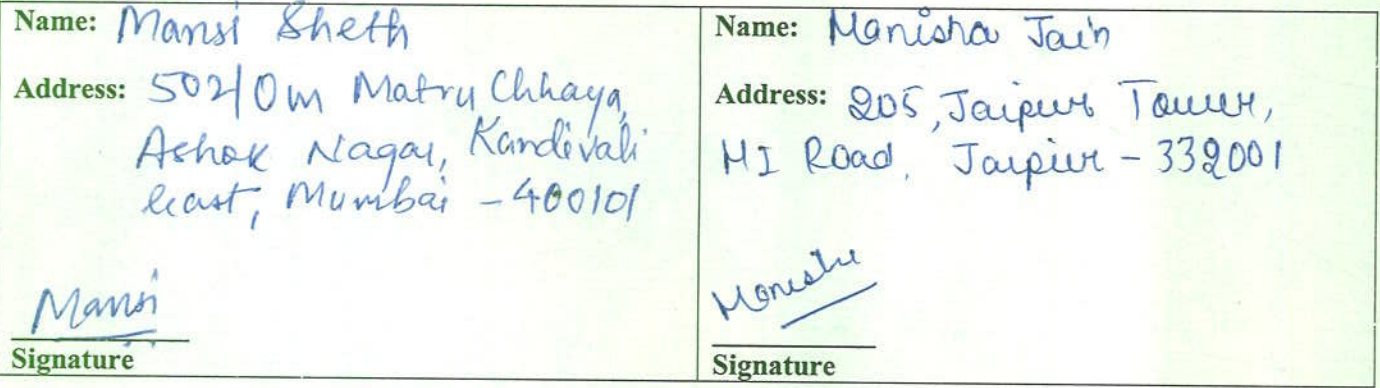 Name: Mansi Sheth
Address: 502/Om Matru Chhaya,
Ashok Nagar, Kandivali
east, Mumbai - 400101
Mansi
Signature
Name: Manisha Jain
Address: 205, Jaipur Tower,
MI Road, Jaipur - 332001
Manisha
Signature